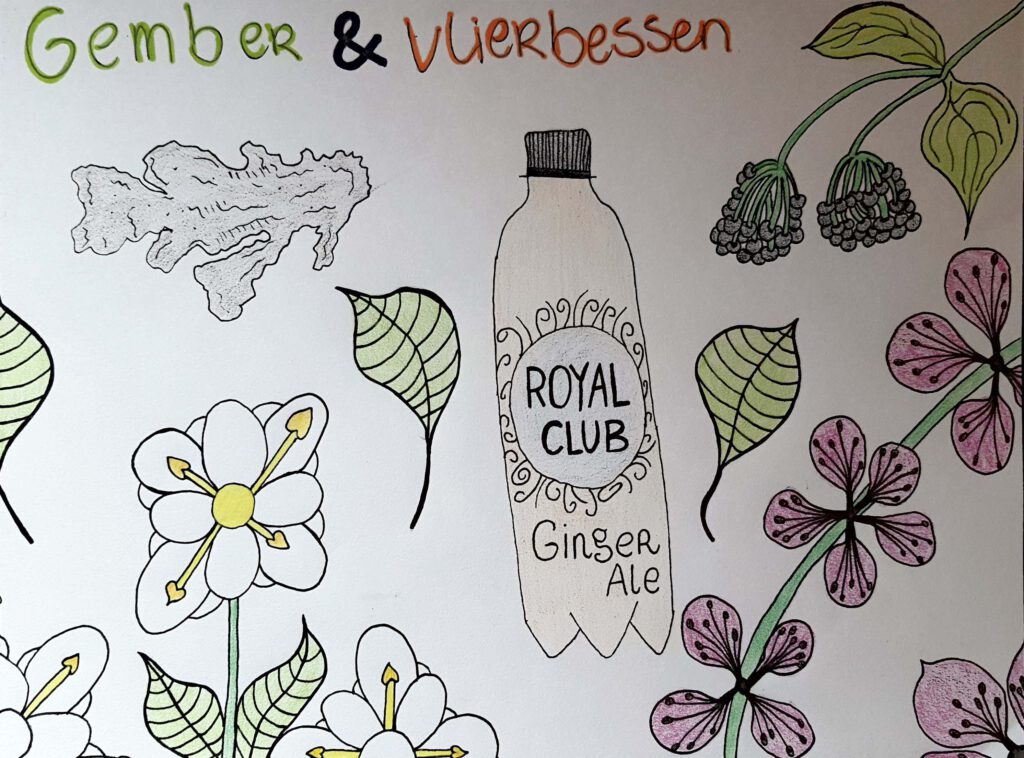 Gember & Vlierbessen
ROYAL
CLUB
Ginger
Ale